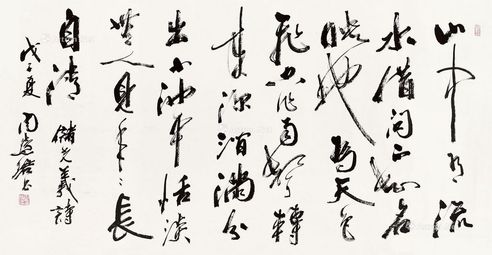 山中有流
水借問不知名
映地為天色
飛空作雨聲轉
來深澗滿分
出小池平恬淡
無人見年々長
自清 儲光羲詩
戊子夏 周慧珺书